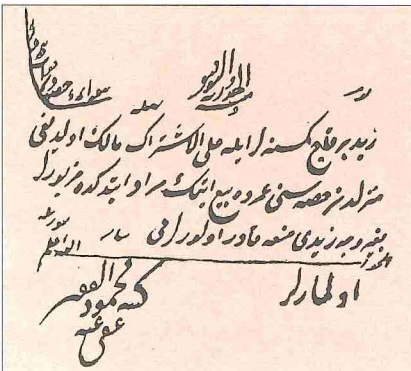 زيد بر قاچ كمسنه لر ايله على الاشتراك مالك اولديغى
منزلدن حصه سنى عمروه بيع ايتمك مراد ايتدكده مزبورلر
بغير وجه زيدى منعه قادر اولورلرمى
الجواب الله اعلم
اولمازلر
كتبه محمود الفقير
عفى عنه